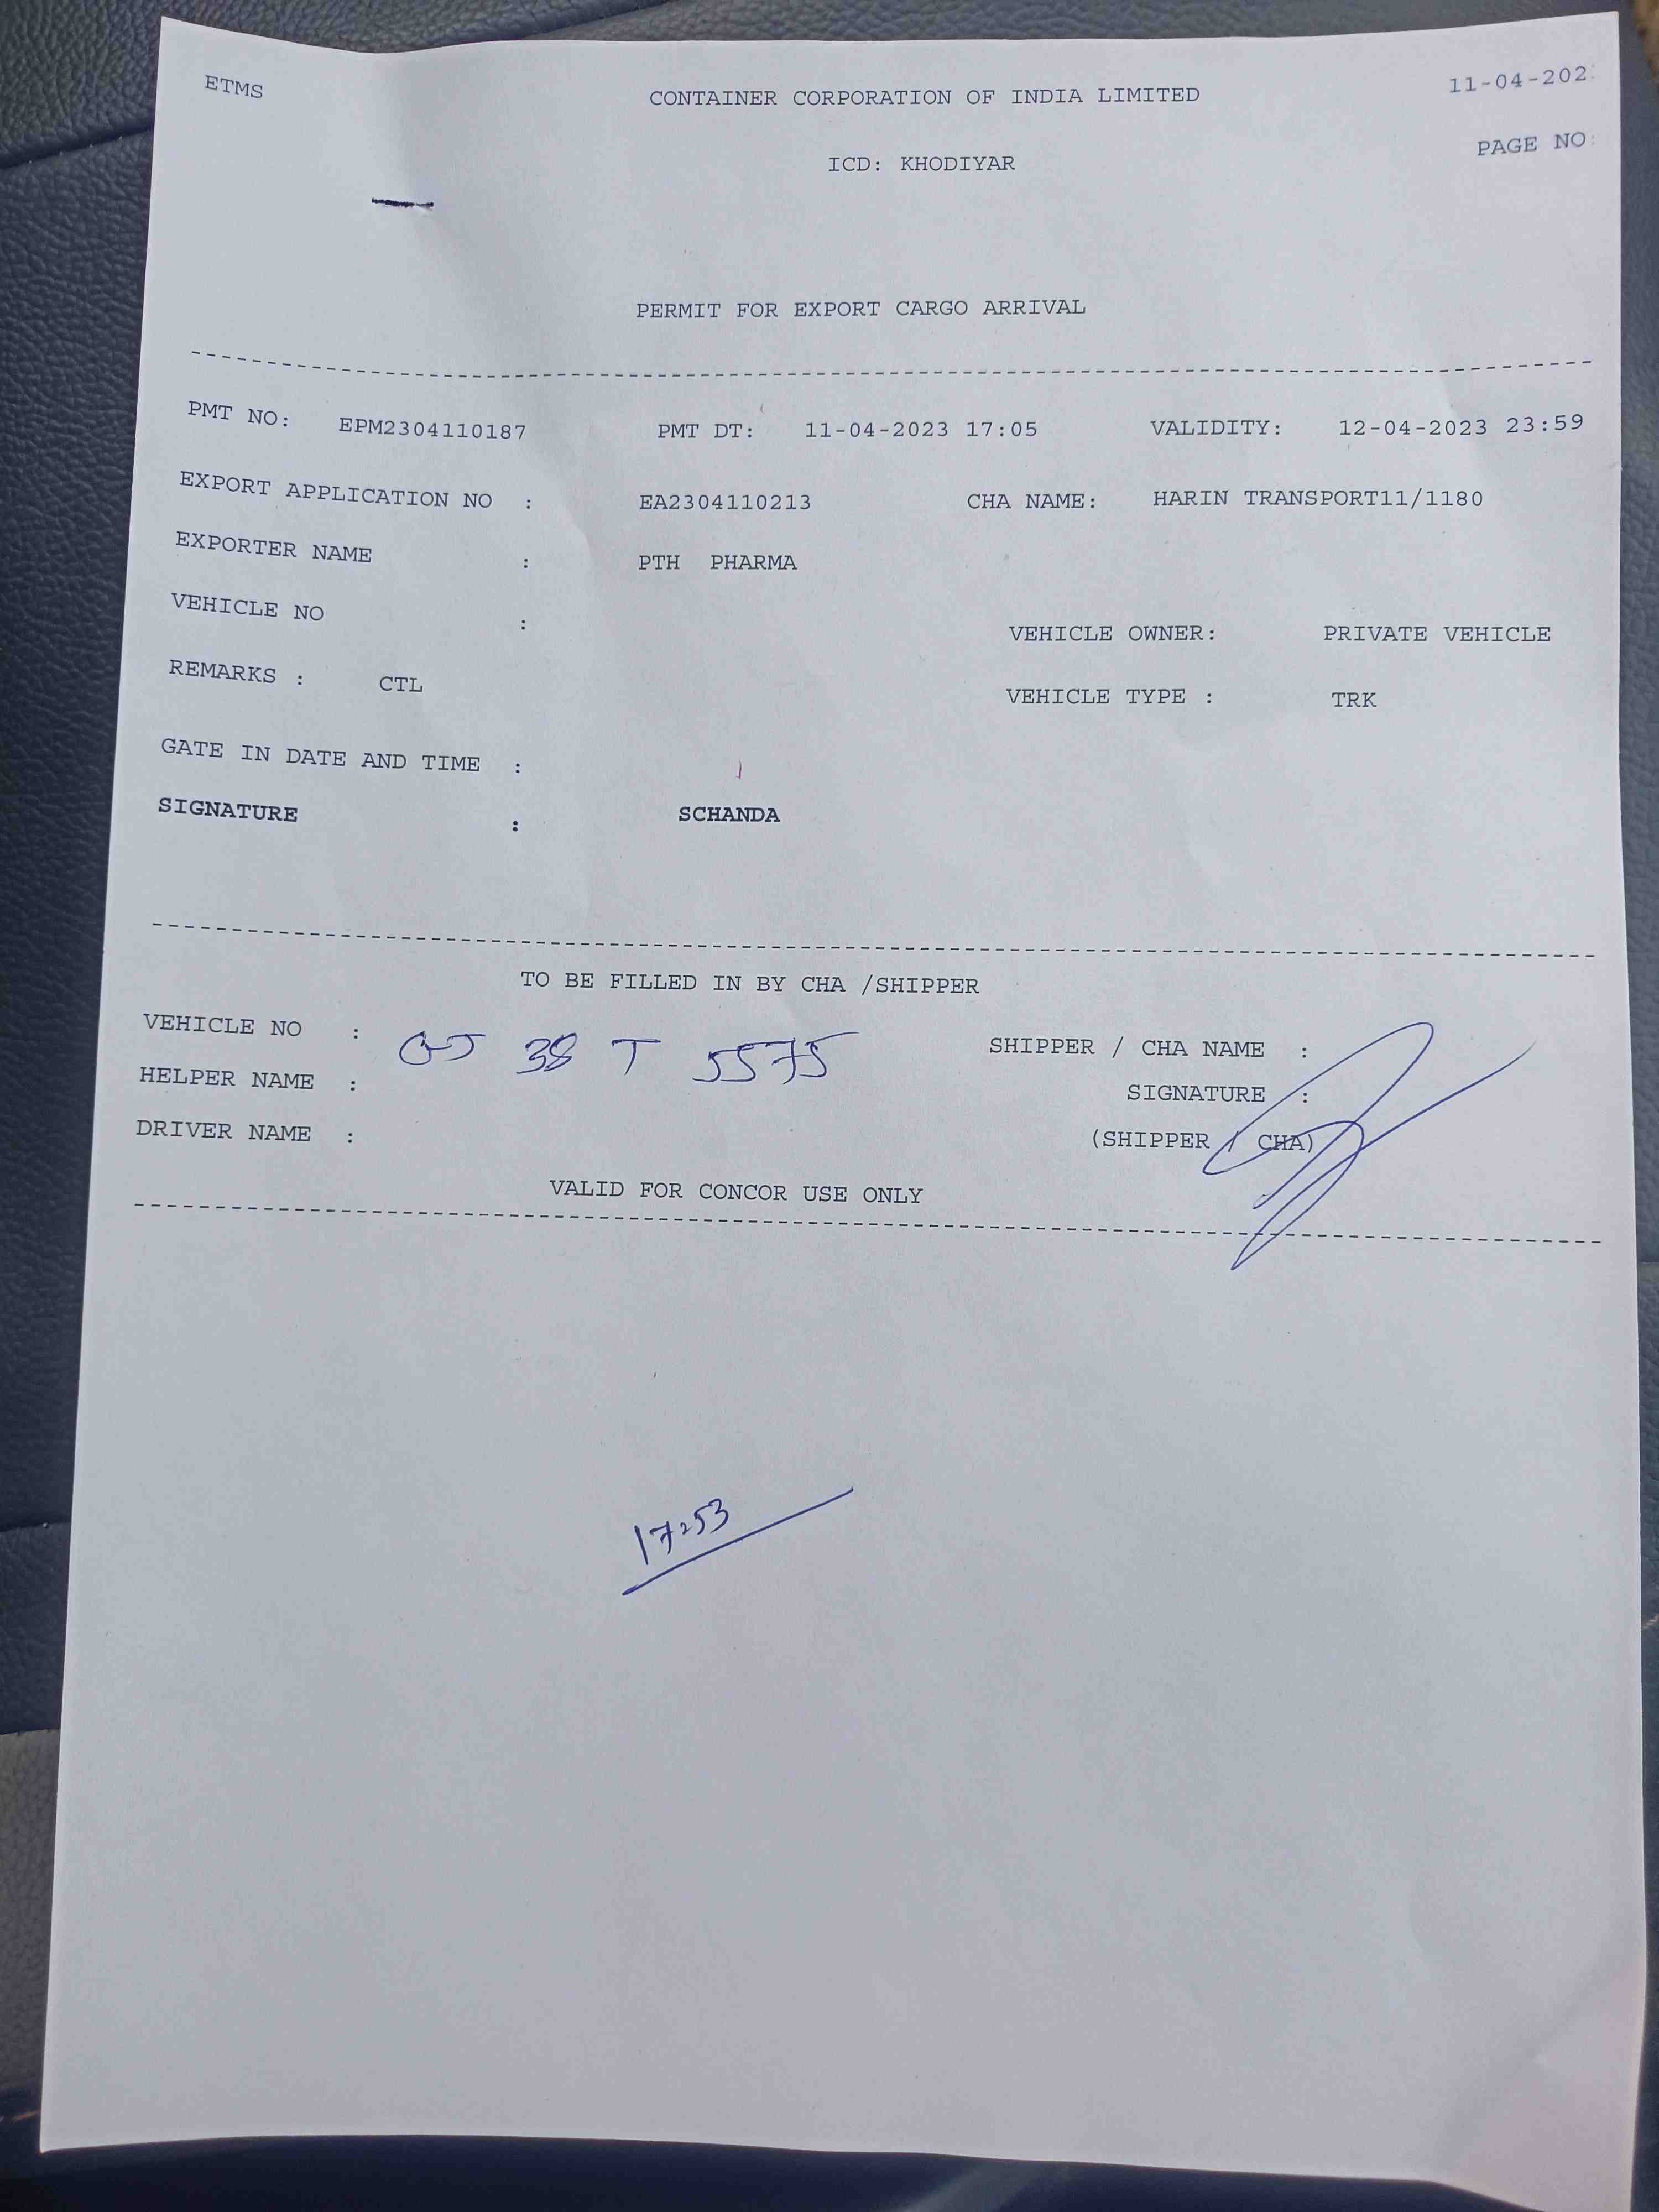 ETMS
CONTAINER CORPORATION OF INDIA LIMITED
11-04-202
ICD: KHODIYAR
PAGE NO:
PERMIT FOR EXPORT CARGO ARRIVAL
PMT NO: EPM2304110187 PMT DT: 11-04-2023 17:05 VALIDITY: 12-04-2023 23:59
EXPORT APPLICATION NO : EA2304110213 CHA NAME: HARIN TRANSPORT11/1180
EXPORTER NAME : PTH PHARMA
VEHICLE NO : VEHICLE OWNER: PRIVATE VEHICLE
REMARKS : CTL VEHICLE TYPE : TRK
GATE IN DATE AND TIME :
SIGNATURE : SCHANDA
TO BE FILLED IN BY CHA /SHIPPER
VEHICLE NO : GJ 38 T 5575 SHIPPER / CHA NAME :
HELPER NAME : SIGNATURE :
DRIVER NAME : (SHIPPER / CHA)
VALID FOR CONCOR USE ONLY
17253